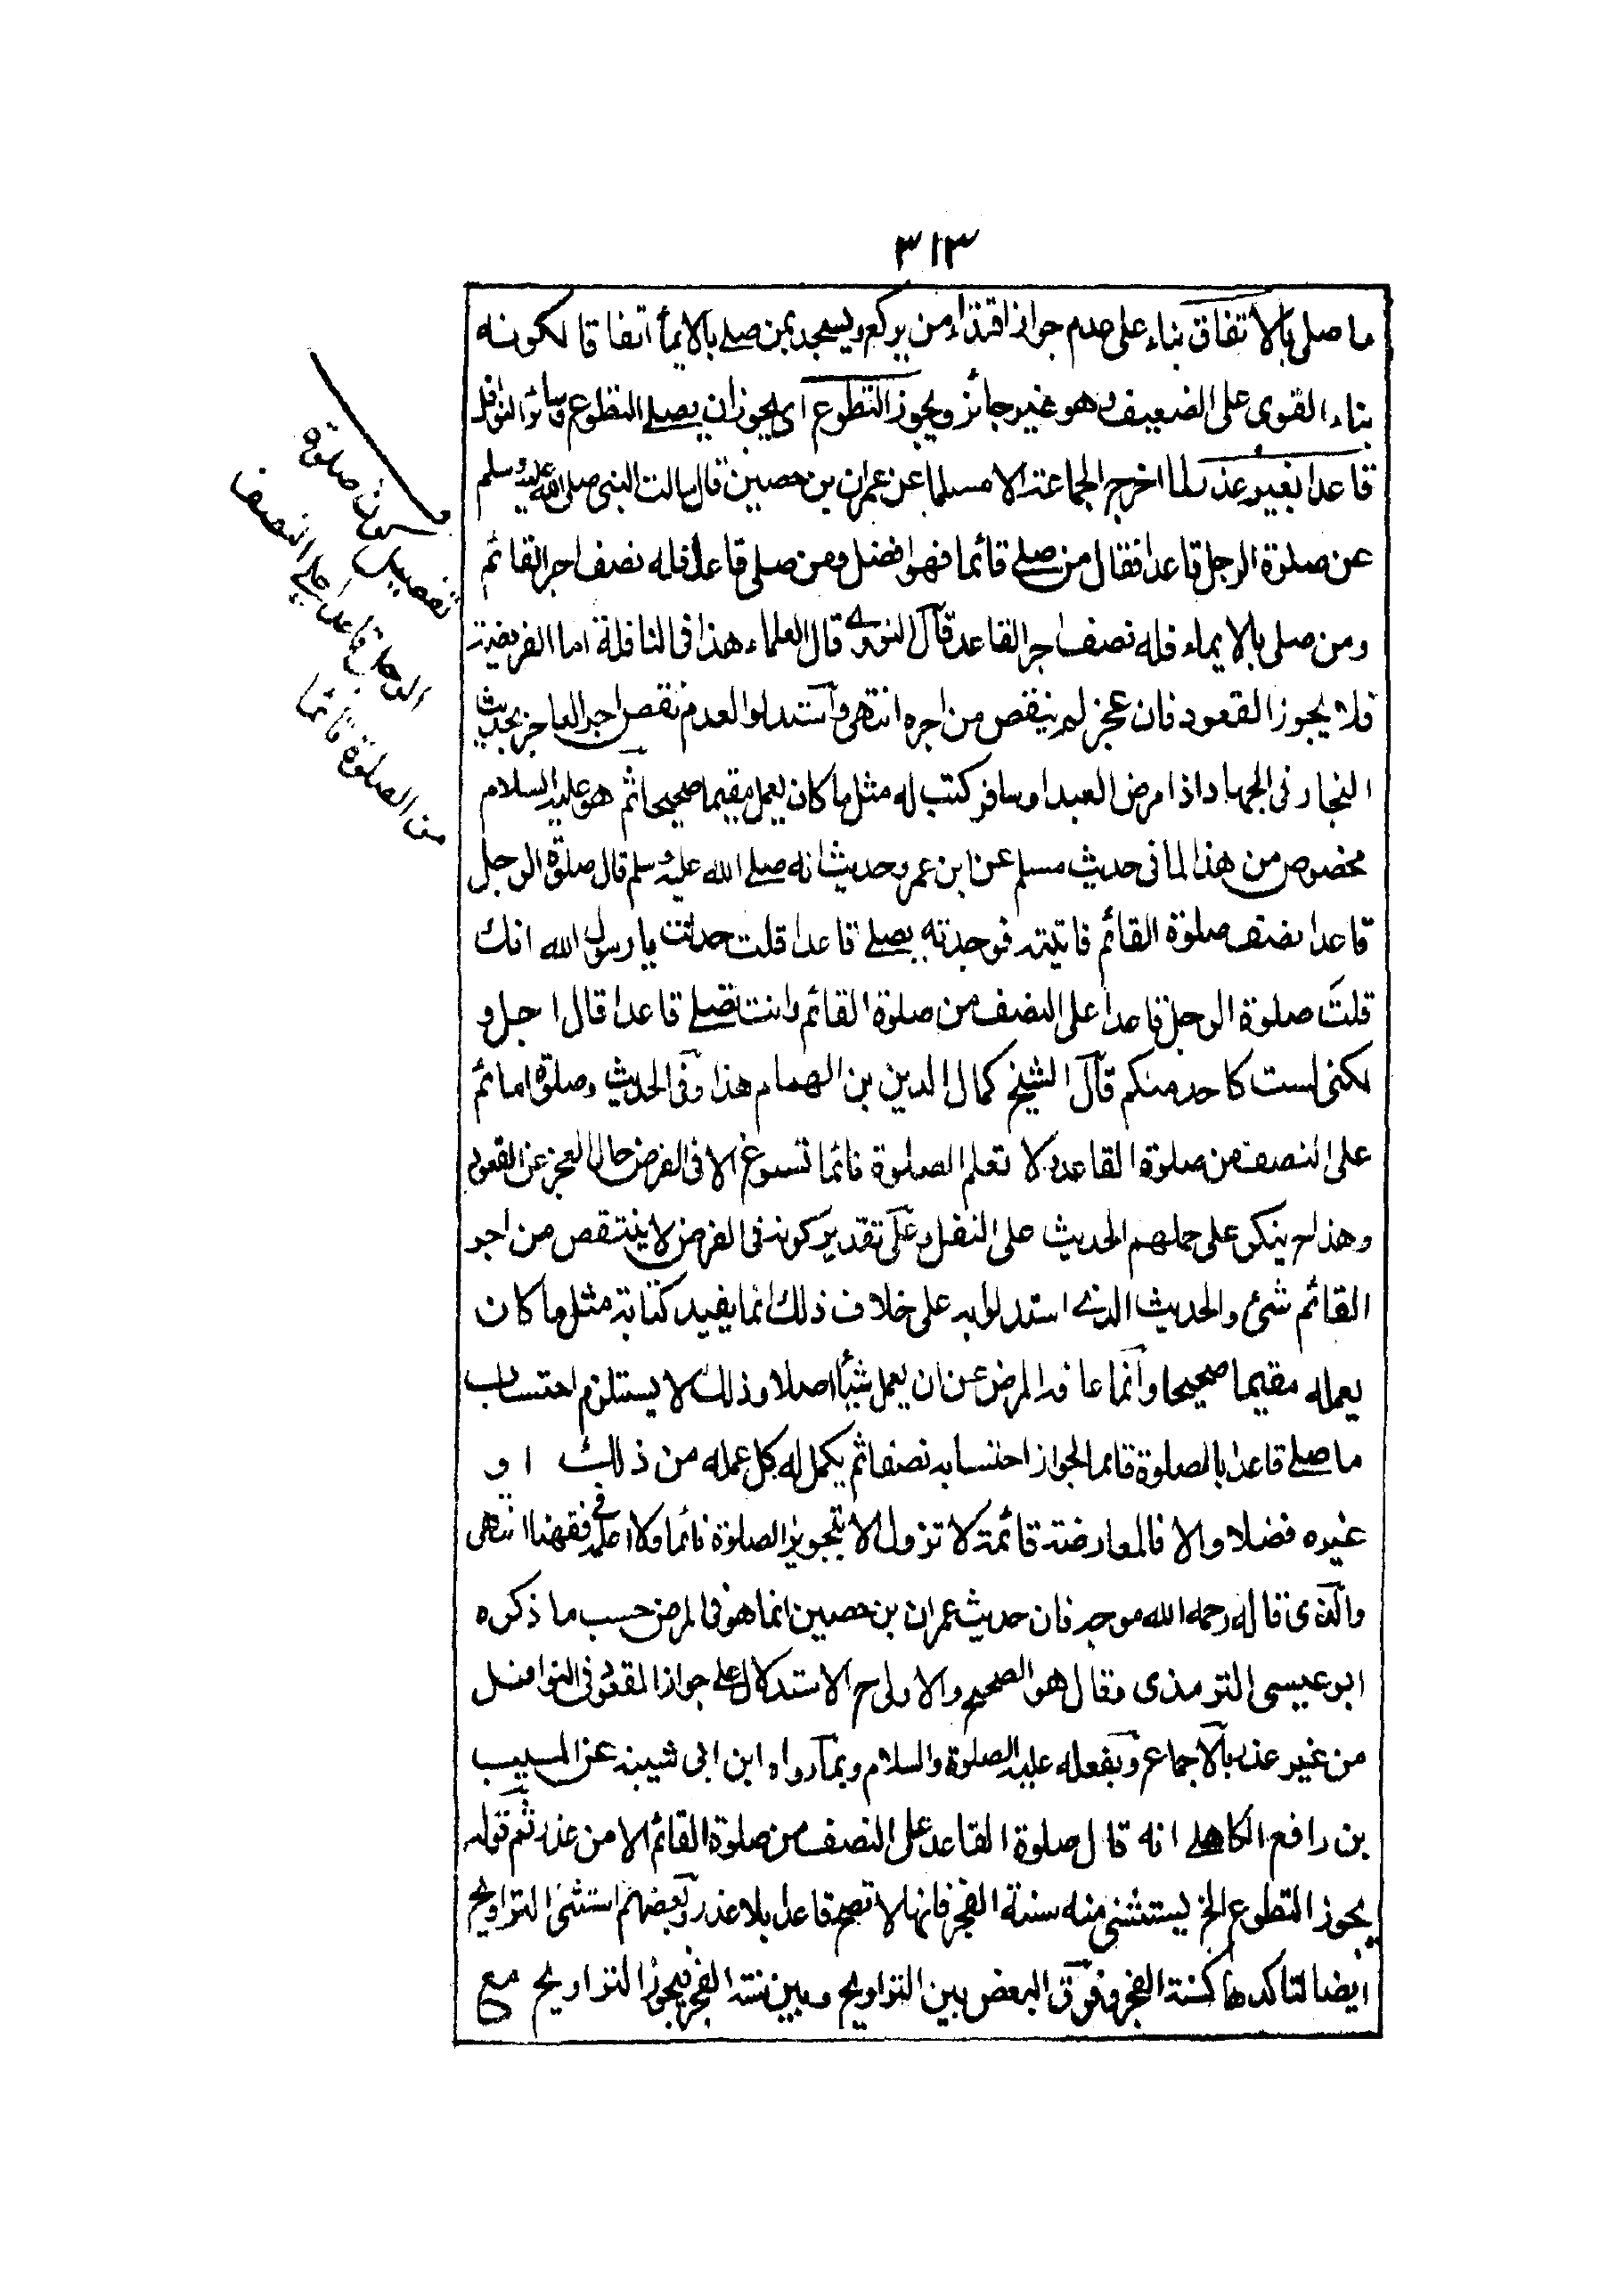 ٣١٣
ما صلى بالاتفاق بناء على عدم جواز اقتداء من يركع ويسجد بمن صلے بالايمأ اتفاقا لكونه
بناء القوى على الضعيف وهو غير جائز ويجوز التطوع اى يجوز ان يصلے التطوع وسائر النوافل
قاعدا بغير عذر لما اخرج الجماعة الا مسلما عن عمران بن حصين قال سالت النبى صلى الله عليه وسلم
عن صلوة الرجل قاعدا فقال من صلے قائما فهو افضل ومن صلى قاعدا فله نصف اجر القائم
ومن صلى بالايماء فله نصف اجر القاعد قال النووے قال العلماء هذا فى النافلة اما الفريضة
فلا يجوز القعود فان عجز لم ينقص من اجره انتهى واستدلوا لعدم نقص اجر العاجز بحديث
البخارى فى الجهاد اذا مرض العبد او سافر كتب له مثل ما كان يعمل مقيما صحيحا ثم هو عليه السلام
مخصوص من هذا لما فى حديث مسلم عن ابن عمرو حديث انه صلے الله عليه وسلم قال صلوة الرجل
قاعدا نصف صلوة القائم فاتيته فوجدته يصلے قاعدا قلت حدثت يا رسول الله انك
قلت صلوة الرجل قاعدا على النصف من صلوة القائم وانت تصلے قاعدا قال اجل و
لكنى لست كاحد منكم قال الشيخ كمال الدين بن الهمام هذا وفى الحديث وصلوة نائم
على النصف من صلوة القاعد ولا تعلم الصلوة نائما تسوغ الا فى الفرض حال العجز عن القعود
وهذا ح ينكر على حملهم الحديث على النفل وعلى تقدير كونه فى الفرض لا ينتقص من اجر
القائم شئ والحديث الذے استدلوا به على خلاف ذلك انما يفيد كتابة مثل ما كان
يعمله مقيما صحيحا وانما عاقه المرض عن ان يعمل شيأ اصلا وذلك لا يستلزم احتساب
ما صلے قاعدا بالصلوة قائما لجواز احتسابه نصفا ثم يكمل له كل عمله من ذلك او
غيره فضلا والا فالمعارضة قائمة لا تزول الا بتجويز الصلوة نائما ولا اعلمه فى فقهنا انتهى
والذى قاله رحمه الله موجه فان حديث عمران بن حصين انما هو فى المرض حسب ما ذكره
ابو عيسى الترمذى وقال هو الصحيح والاولى ح الاستدلال على جواز القعود فى النوافل
من غير عذر بالاجماع وبفعله عليه الصلوة والسلام وبما رواه ابن ابى شيبة عن المسيب
بن رافع الكاهلے انه قال صلوة القاعد على النصف من صلوة القائم الا من عذر ثم قوله
يجوز التطوع الخ يستثنى منه سنة الفجر فانها لا تصح قاعدا بلا عذر وبعضهم استثنى التراويح
ايضا لتاكدها كسنة الفجر وفرق البعض بين التراويح وبين سنة الفجر فيجوز التراويح مع
تفصيل كون صلوة
الرجل قاعدا على النصف
من الصلوة قائما